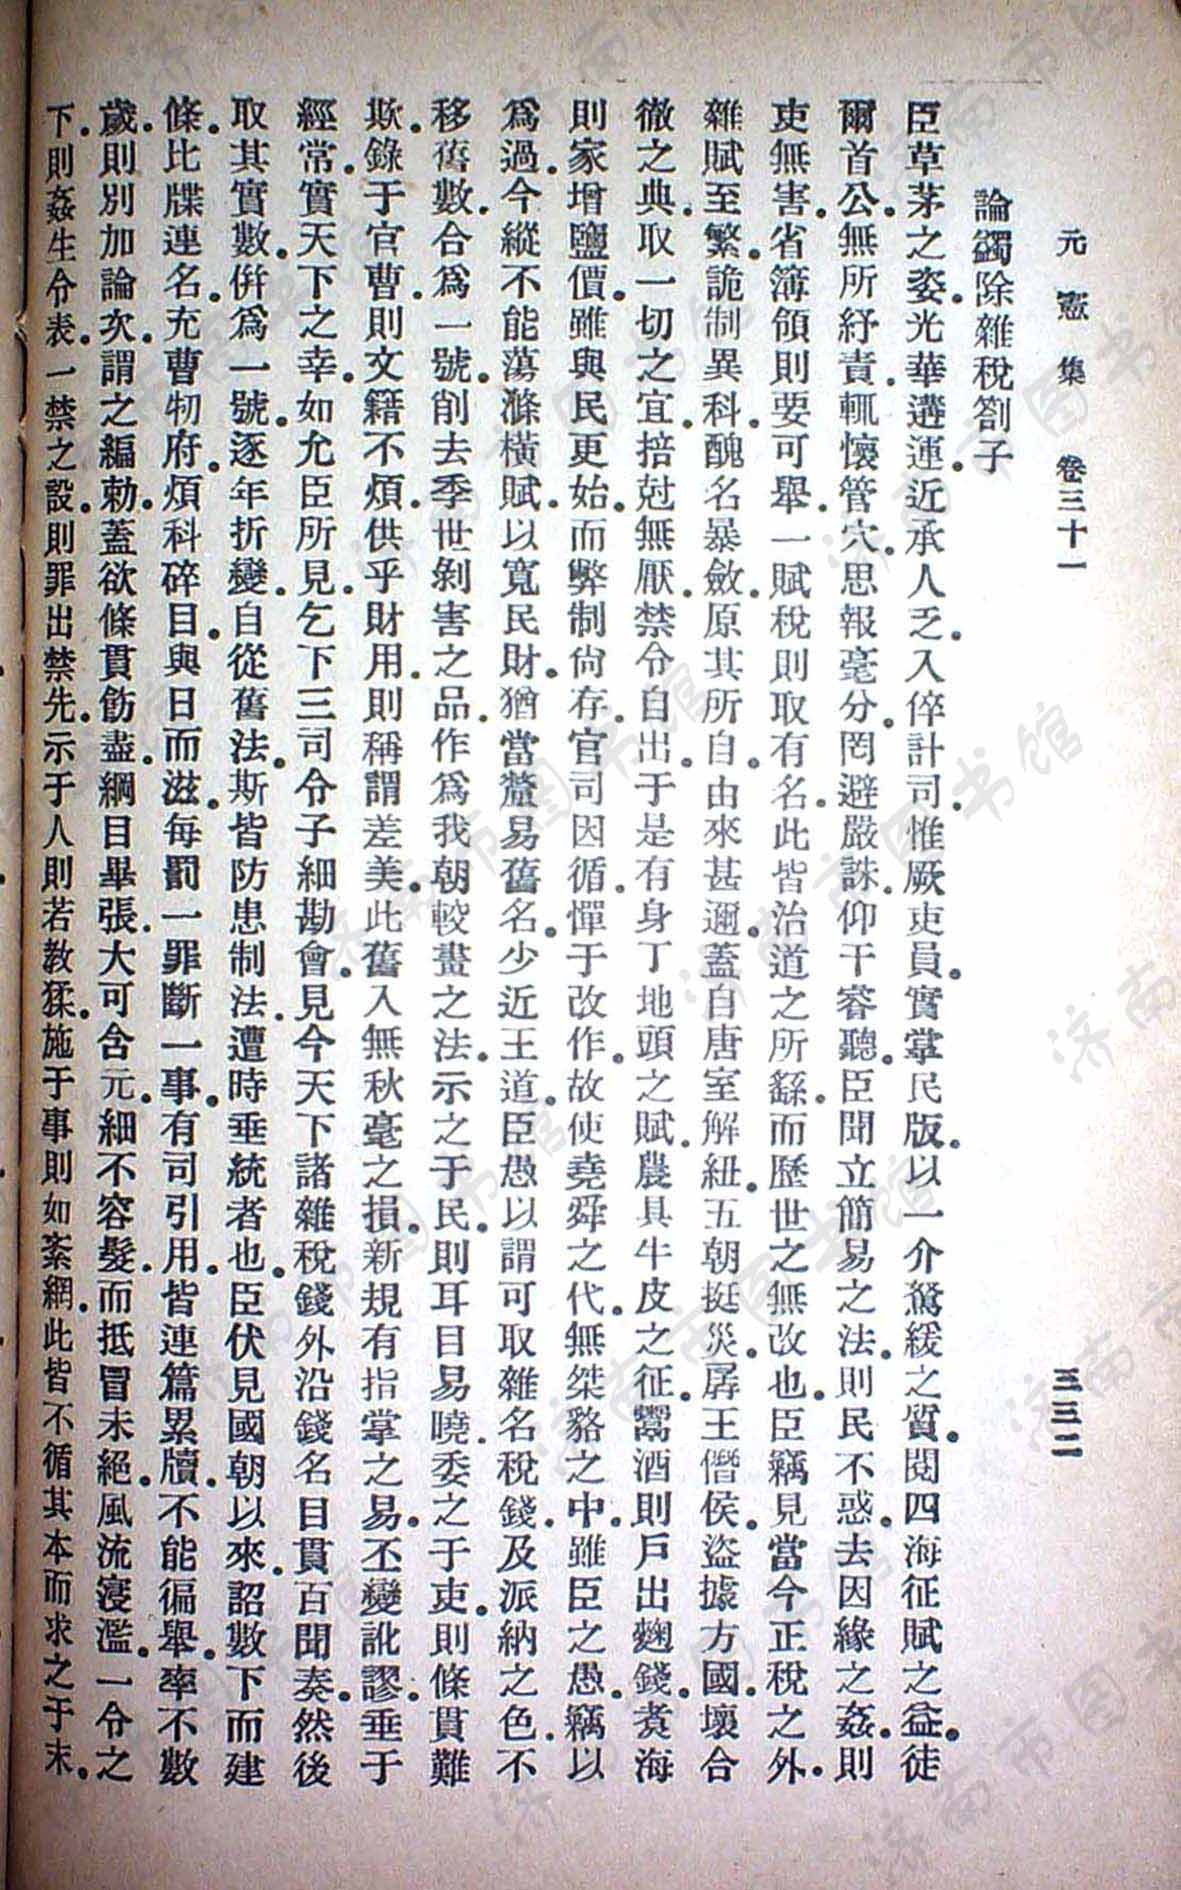 元憲集　卷三十一　三三二
論蠲除雜稅劄子
臣草茅之姿。光華遘運。近承人乏。入倅計司。惟厥吏員。實掌民版。以一介駑緩之質。閱四海征賦之益。徒
爾首公。無所紓責。輒懷管穴。思報毫分。罔避嚴誅。仰干睿聽。臣聞立簡易之法。則民不惑。去因緣之姦。則
吏無害。省簿領則要可舉。一賦稅則取有名。此皆治道之所繇。而歷世之無改也。臣竊見當今正稅之外。
雜賦至繁。詭制異科。醜名暴斂。原其所自。由來甚邇。蓋自唐室解紐。五朝挺災。孱王僭侯。盜據方國。壞合
徹之典。取一切之宜。掊尅無厭。禁令自出。于是有身丁地頭之賦。農具牛皮之征。鬻酒則戶出麴錢。煑海
則家增鹽價。雖與民更始。而弊制尙存。官司因循。憚于改作。故使堯舜之代。無桀貉之中。雖臣之愚。竊以
爲過。今縱不能蕩滌橫賦。以寬民財。猶當釐易舊名。少近王道。臣愚以謂可取雜名稅錢。及派納之色。不
移舊數。合爲一號。削去季世剝害之品。作爲我朝較畫之法。示之于民。則耳目易曉。委之于吏。則條貫難
欺。錄于官曹。則文籍不煩。供乎財用。則稱謂差美。此舊入無秋毫之損。新規有指掌之易。丕變訛謬。垂于
經常。實天下之幸。如允臣所見。乞下三司。令子細勘會。見今天下諸雜稅錢外沿錢名目貫百聞奏。然後
取其實數。併爲一號。逐年折變。自從舊法。斯皆防患制法。遭時垂統者也。臣伏見國朝以來。詔數下而建
條。比牒連名。充曹牣府。煩科碎目。與日而滋。每罰一罪斷一事。有司引用。皆連篇累牘。不能徧舉。率不數
歲。則別加論次。謂之編勅。蓋欲條貫飭盡。綱目畢張。大可含元。細不容髮。而抵冒未絕。風流寖濫。一令之
下。則姦生令表。一禁之設。則罪出禁先。示于人則若教猱。施于事則如紊網。此皆不循其本而求之于末。